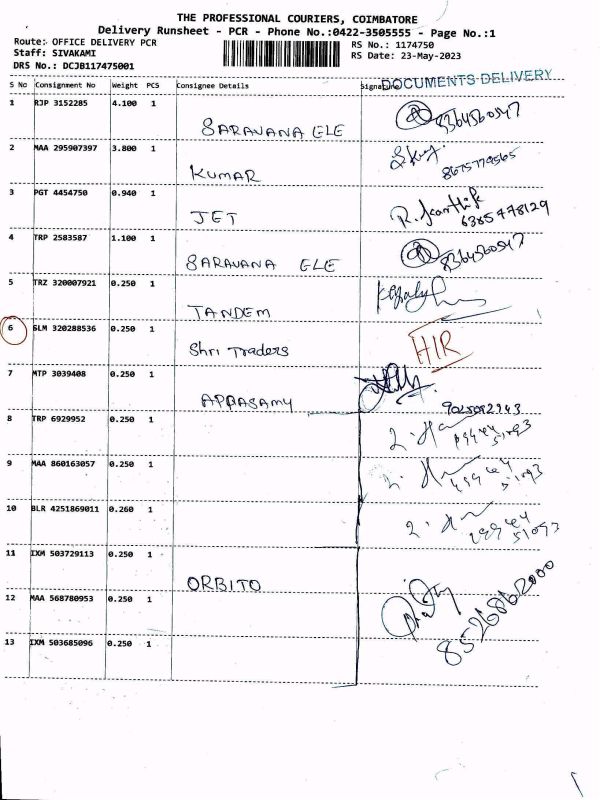 THE PROFESSIONAL COURIERS, COIMBATORE
Delivery Runsheet - PCR - Phone No.:0422-3505555 - Page No.:1
Route: OFFICE DELIVERY PCR
Staff: SIVAKAMI
DRS No.: DCJB117475001
RS No.: 1174750
RS Date: 23-May-2023
DOCUMENTS DELIVERY
S No Consignment No Weight PCS Consignee Details Signature
1 RJP 3152285 4.100 1
SARAVANA ELE 8364560547
2 MAA 295907397 3.800 1
KUMAR
3 PGT 4454750 0.940 1
JET 6385478129
4 TRP 2583587 1.100 1
SARAVANA ELE 8364560547
5 TRZ 320007921 0.250 1
TANDEM
6 SLM 320288536 0.250 1
Shri Traders HIR
7 MTP 3039408 0.250 1
APPASAMY
8 TRP 6929952 0.250 1
9 MAA 860163057 0.250 1
10 BLR 4251869011 0.260 1
11 IXM 503729113 0.250 1
ORBITO
12 MAA 568780953 0.250 1
8526862000
13 IXM 503685096 0.250 1